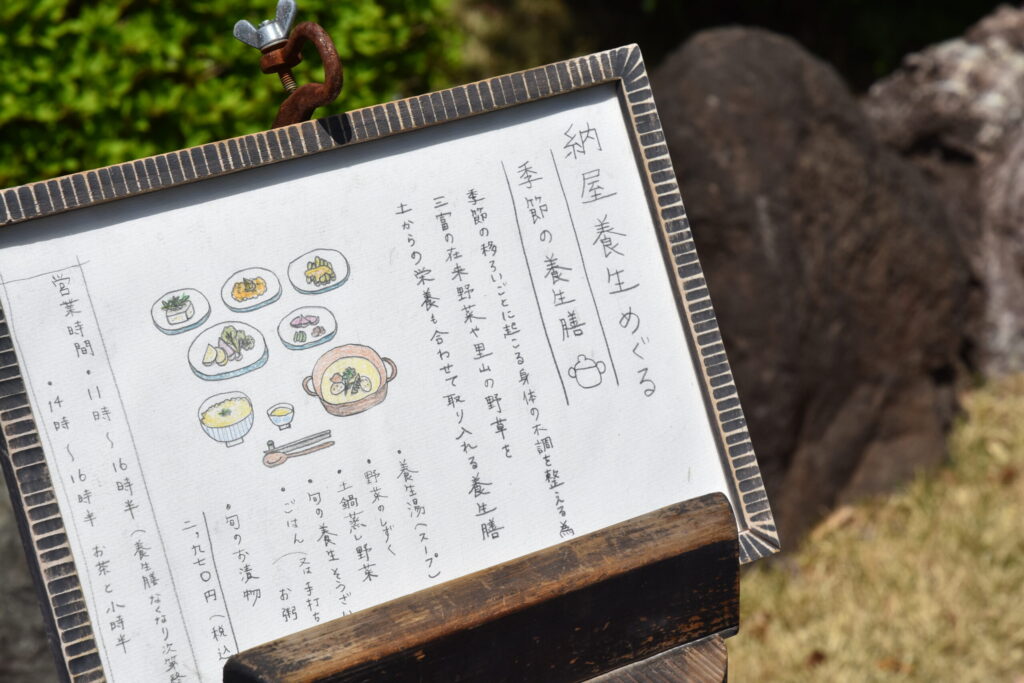 納屋養生めぐる
季節の養生膳
季節の移ろいごとに起こる身体の不調を整える為
三富の在来野菜や里山の野草を
土からの栄養も合わせて取り入れる養生膳
・養生湯（スープ）
・野菜のしずく
・土鍋蒸し野菜
・旬の養生そうざい
・ごはん（又は手打ち お粥
・旬のお漬物
二,九七〇円（税込
営業時間・11時～16時半（養生膳なくなり次第終
・14時～16時半 お茶と小時半